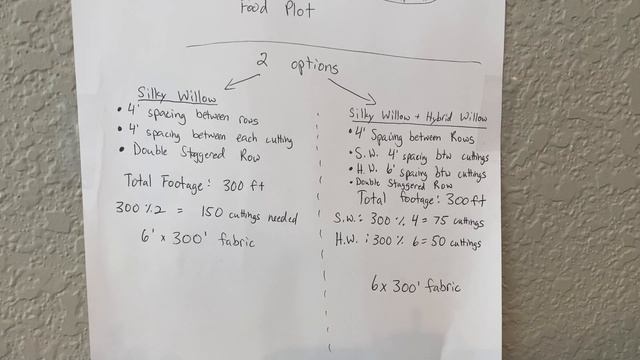 Food Plot
2 options
Silky Willow
• 4' spacing between rows
• 4' spacing between each cutting
• Double Staggered Row
Total Footage: 300 ft
300 % 2 = 150 cuttings needed
6' x 300' fabric
Silky Willow + Hybrid Willow
• 4' Spacing between Rows
• S.W. 4' spacing btw cuttings
• H.W. 6' spacing btw cuttings
• Double Staggered Row
Total footage: 300ft
S.W.: 300 % 4 = 75 cuttings
H.W.: 300 % 6 = 50 cuttings
6x 300' fabric